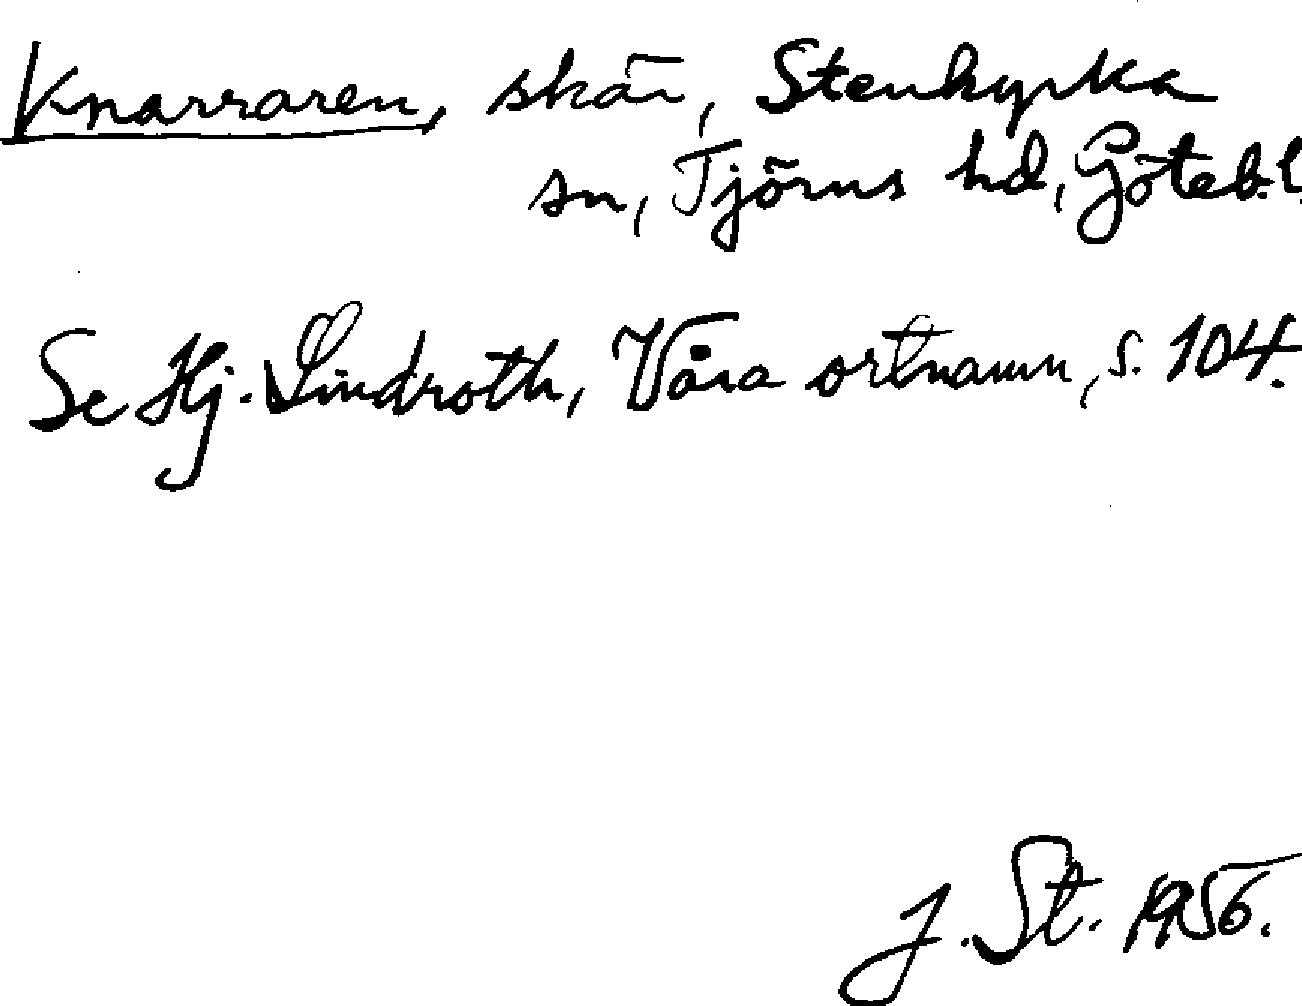 Knarraren, skär, Stenkyrka
sn, Tjörns hd, Göteb.l.
Se Hj. Lindroth, Våra ortnamn, s. 104.
J. St. 1956.